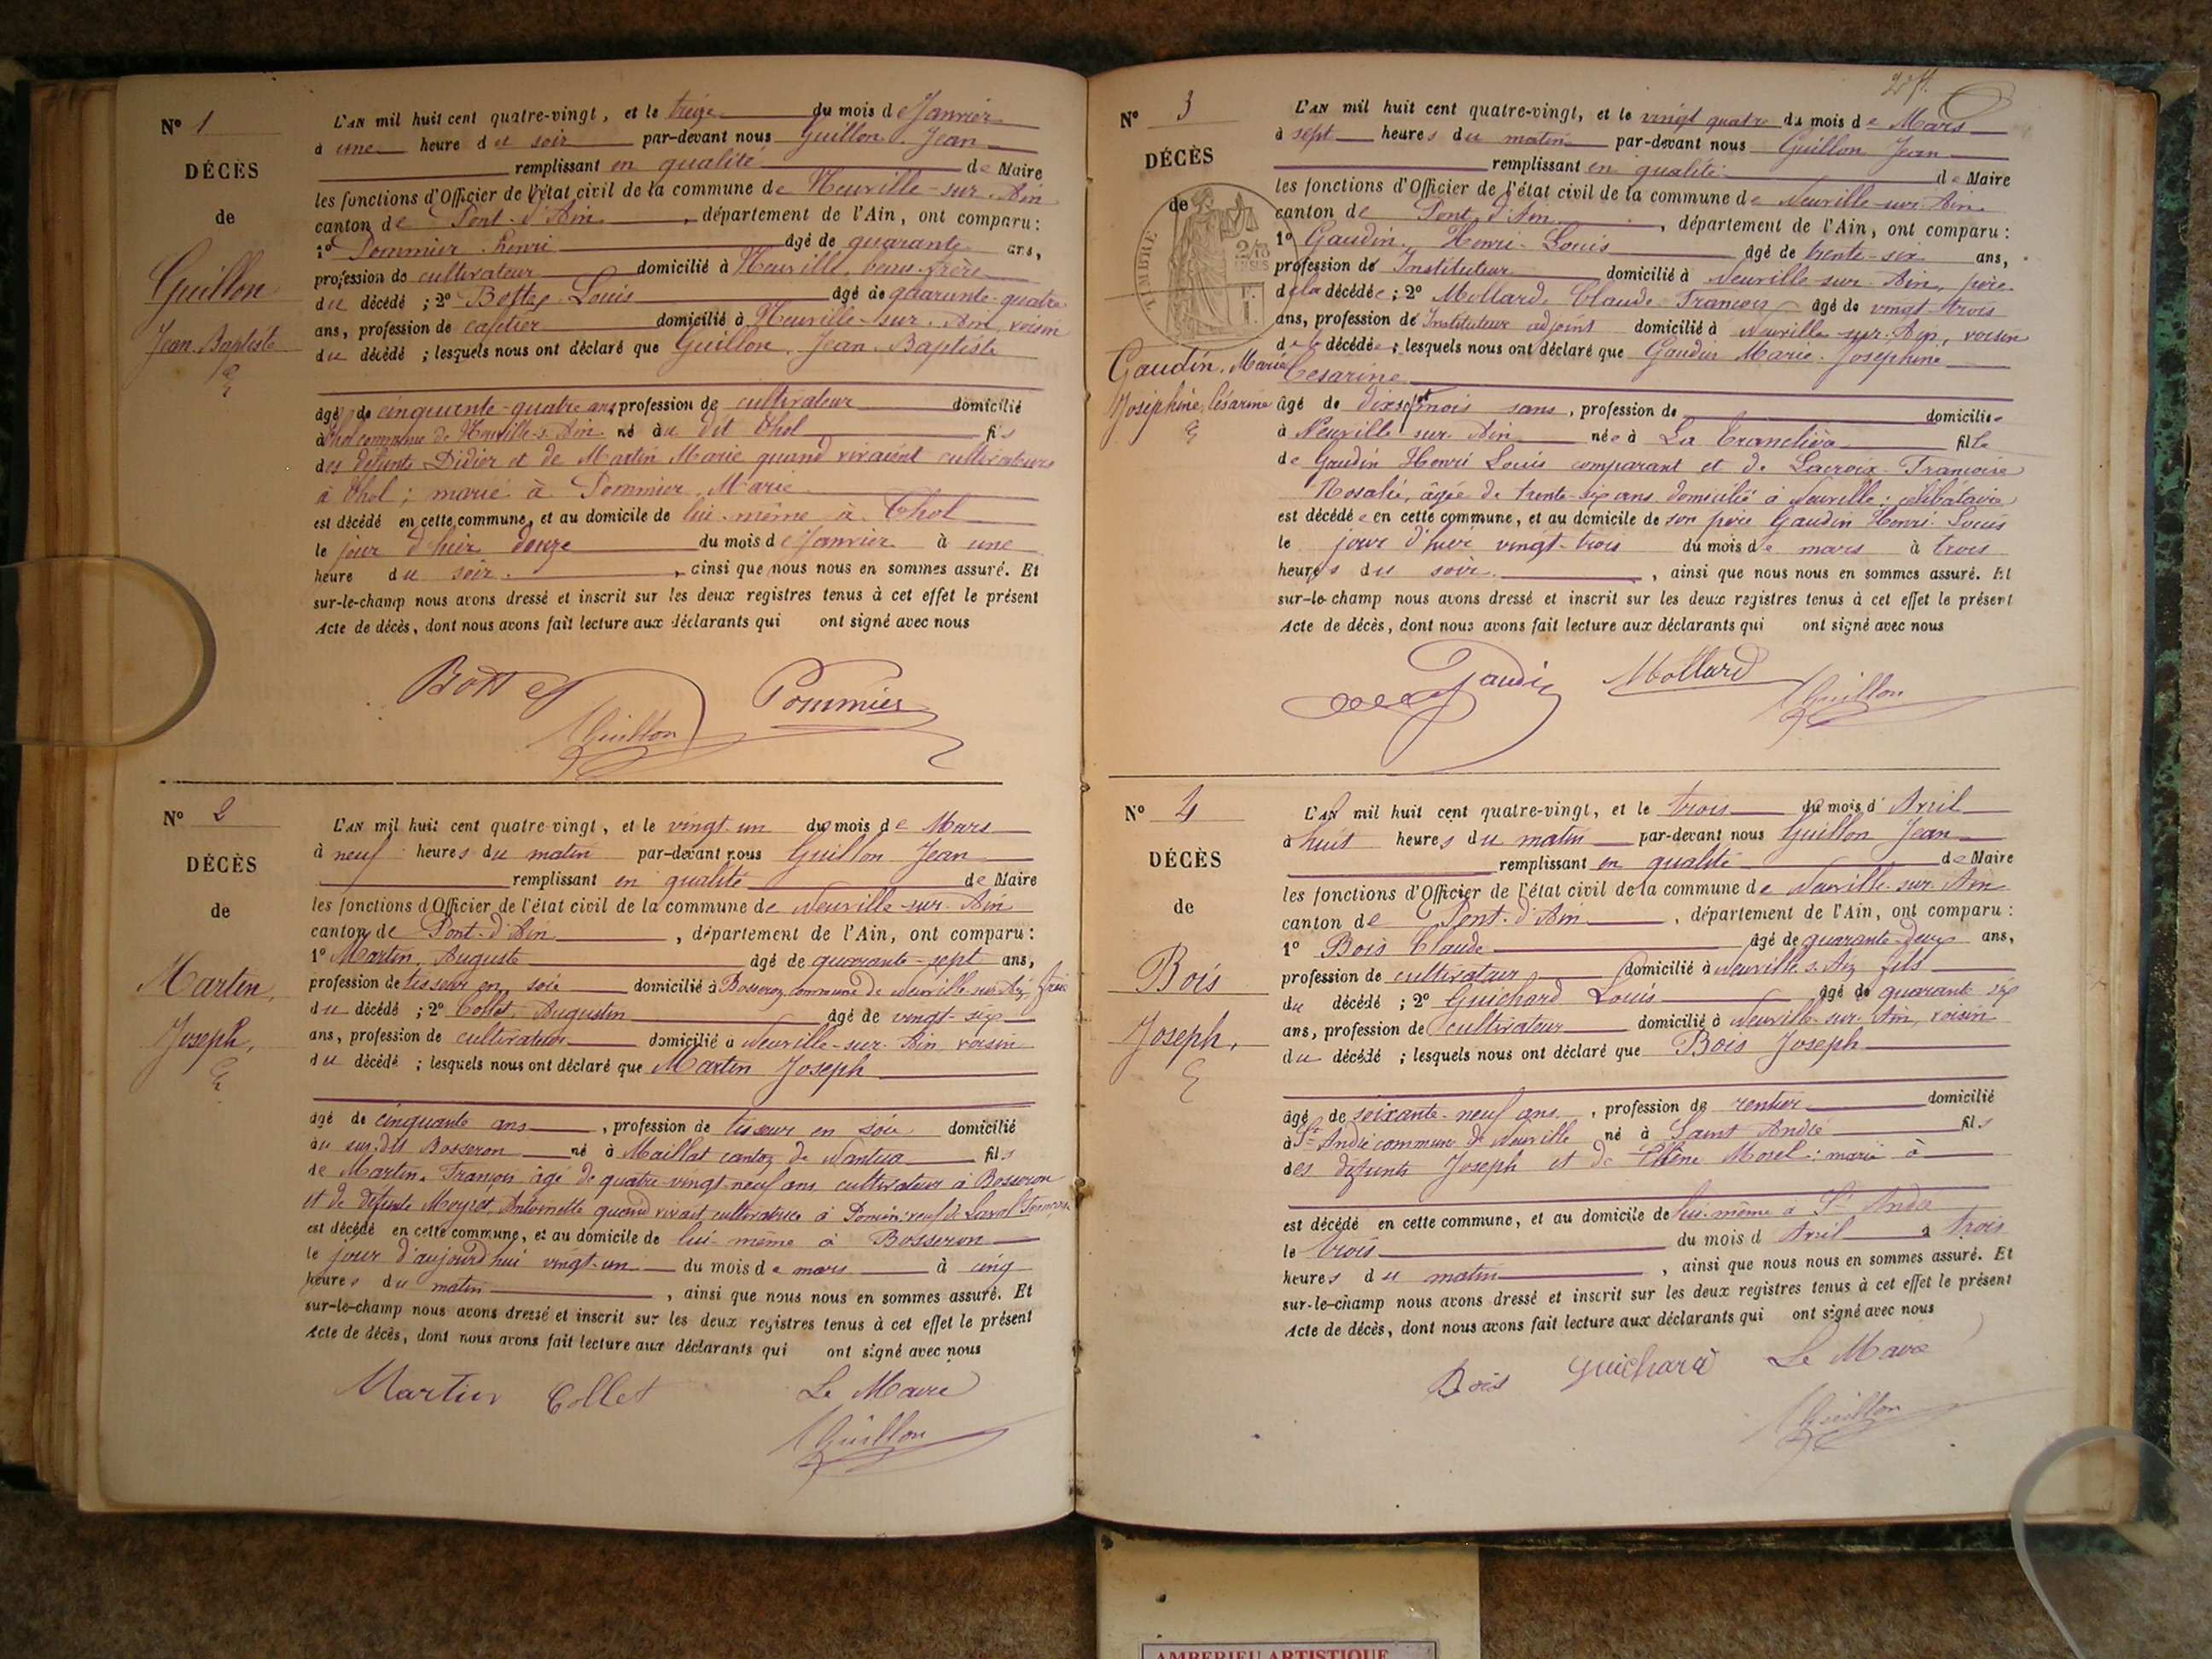 N° 1
DÉCÈS
de
Guillon
Jean-Baptiste
L'AN mil huit cent quatre-vingt, et le treize du mois de Janvier
à une heure du soir par-devant nous Guillon Jean
remplissant en qualité de Maire
les fonctions d'Officier de l'état civil de la commune de Neuville-sur-Ain
canton de Pont-d'Ain, département de l'Ain, ont comparu :
1° Pommier Henri âgé de quarante ans,
profession de cultivateur domicilié à Neuville, beau-frère
du décédé ; 2° Bottex Louis âgé de quarante-quatre
ans, profession de cafetier domicilié à Neuville-sur-Ain, voisin
du décédé ; lesquels nous ont déclaré que Guillon, Jean-Baptiste
âgé de cinquante-quatre ans, profession de cultivateur domicilié
à Thol commune de Neuville-s-Ain né au dit Thol fils
des défunts Didier et de Martin Marie quand vivaient cultivateurs
à Thol ; marié à Pommier Marie
est décédé en cette commune, et au domicile de lui-même à Thol
le jour d'hier douze du mois de Janvier à une
heure du soir, ainsi que nous nous en sommes assuré. Et
sur-le-champ nous avons dressé et inscrit sur les deux registres tenus à cet effet le présent
Acte de décès, dont nous avons fait lecture aux déclarants qui ont signé avec nous
Bottex Pommier
Guillon
N° 2
DÉCÈS
de
Martin,
Joseph,
L'AN mil huit cent quatre-vingt, et le vingt-un du mois de Mars
à neuf heures du matin par-devant nous Guillon Jean
remplissant en qualité de Maire
les fonctions d'Officier de l'état civil de la commune de Neuville-sur-Ain
canton de Pont-d'Ain, département de l'Ain, ont comparu :
1° Martin, Auguste âgé de quarante-sept ans,
profession de tisseur en soie domicilié à Bosseron commune de Neuville-sur-Ain, frère
du décédé ; 2° Collet, Augustin âgé de vingt-six
ans, profession de cultivateur domicilié à Neuville-sur-Ain, voisin
du décédé ; lesquels nous ont déclaré que Martin Joseph
âgé de cinquante ans, profession de tisseur en soie domicilié
au sus-dit Bosseron né à Maillat canton de Nantua fils
de Martin, François âgé de quatre-vingt-neuf ans cultivateur à Bosseron
et de défunte Antoinette quand vivait cultivatrice à veuf de Laval
est décédé en cette commune, et au domicile de lui-même à Bosseron
le jour d'aujourd'hui vingt-un du mois de mars à cinq
heures du matin, ainsi que nous nous en sommes assuré. Et
sur-le-champ nous avons dressé et inscrit sur les deux registres tenus à cet effet le présent
Acte de décès, dont nous avons fait lecture aux déclarants qui ont signé avec nous
Martin Collet Le Maire
Guillon
N° 3
DÉCÈS
de
TIMBRE
Gaudin, Marie
Joséphine, Césarine
L'AN mil huit cent quatre-vingt, et le vingt quatre du mois de Mars
à sept heures du matin par-devant nous Guillon Jean
remplissant en qualité de Maire
les fonctions d'Officier de l'état civil de la commune de Neuville-sur-Ain
canton de Pont d'Ain, département de l'Ain, ont comparu :
1° Gaudin, Henri-Louis âgé de trente-six ans,
profession de Instituteur domicilié à Neuville-sur-Ain, père
de la décédée ; 2° Mollard, Claude François âgé de vingt-trois
ans, profession de Instituteur adjoint domicilié à Neuville-sur-Ain, voisin
de la décédée ; lesquels nous ont déclaré que Gaudin Marie-Joséphine
Césarine
âgé de dix-sept mois sans, profession de domiciliée
à Neuville-sur-Ain née à La Tranclière fille
de Gaudin Henri Louis comparant et de Lacroix Françoise
Rosalie, âgée de trente-six ans domicilié à Neuville ; célibataire
est décédée en cette commune, et au domicile de son père Gaudin Henri-Louis
le jour d'hier vingt-trois du mois de mars à trois
heures du soir, ainsi que nous nous en sommes assuré. Et
sur-le-champ nous avons dressé et inscrit sur les deux registres tenus à cet effet le présent
Acte de décès, dont nous avons fait lecture aux déclarants qui ont signé avec nous
Gaudin Mollard
Guillon
N° 4
DÉCÈS
de
Bois
Joseph,
L'AN mil huit cent quatre-vingt, et le trois du mois d'Avril
à huit heures du matin par-devant nous Guillon Jean
remplissant en qualité de Maire
les fonctions d'Officier de l'état civil de la commune de Neuville-sur-Ain
canton de Pont-d'Ain, département de l'Ain, ont comparu :
1° Bois Claude âgé de quarante-deux ans,
profession de cultivateur domicilié à Neuville-s-Ain fils
du décédé ; 2° Guichard Louis âgé de quarante six
ans, profession de cultivateur domicilié à Neuville-sur-Ain, voisin
du décédé ; lesquels nous ont déclaré que Bois Joseph
âgé de soixante-neuf ans, profession de rentier domicilié
à St André commune de Neuville né à Saint André fils
des défunts Joseph et de Morel ; marié à
est décédé en cette commune, et au domicile de lui-même à St André
le trois du mois d'Avril à trois
heures du matin, ainsi que nous nous en sommes assuré. Et
sur-le-champ nous avons dressé et inscrit sur les deux registres tenus à cet effet le présent
Acte de décès, dont nous avons fait lecture aux déclarants qui ont signé avec nous
Bois Guichard Le Maire
Guillon
AMBERIEU ARTISTIQUE